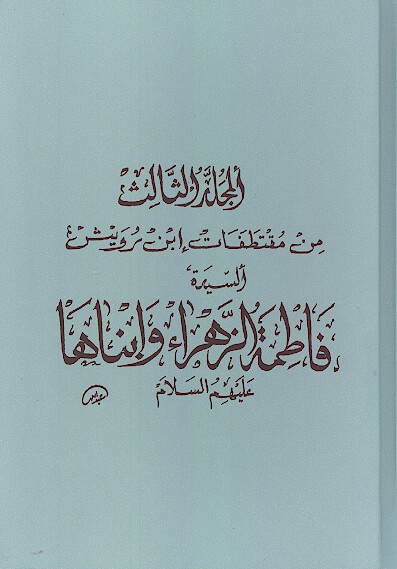 المجلد الثالث
من مقتطفات إبن رويش
السيدة
فاطمة الزهراء وابناها
عليهم السلام